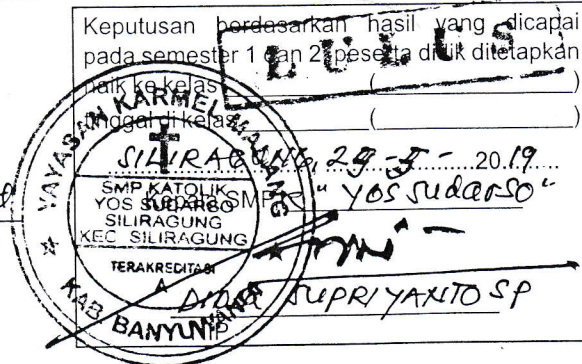 Keputusan berdasarkan hasil yang dicapai
pada semester 1 dan 2 peserta didik ditetapkan
LULUS
naik ke kelas ( )
tinggal di kelas ( )
SILIRAGUNG, 29-5- 2019
Kepala SMP K "Yos Sudarso"
YAYASAN KARMEL MALANG
SMP KATOLIK
YOS SUDARSO
SILIRAGUNG
KEC SILIRAGUNG
TERAKREDITASI
A
KAB. BANYUWANGI
SUPRIYANTO SP
NIP